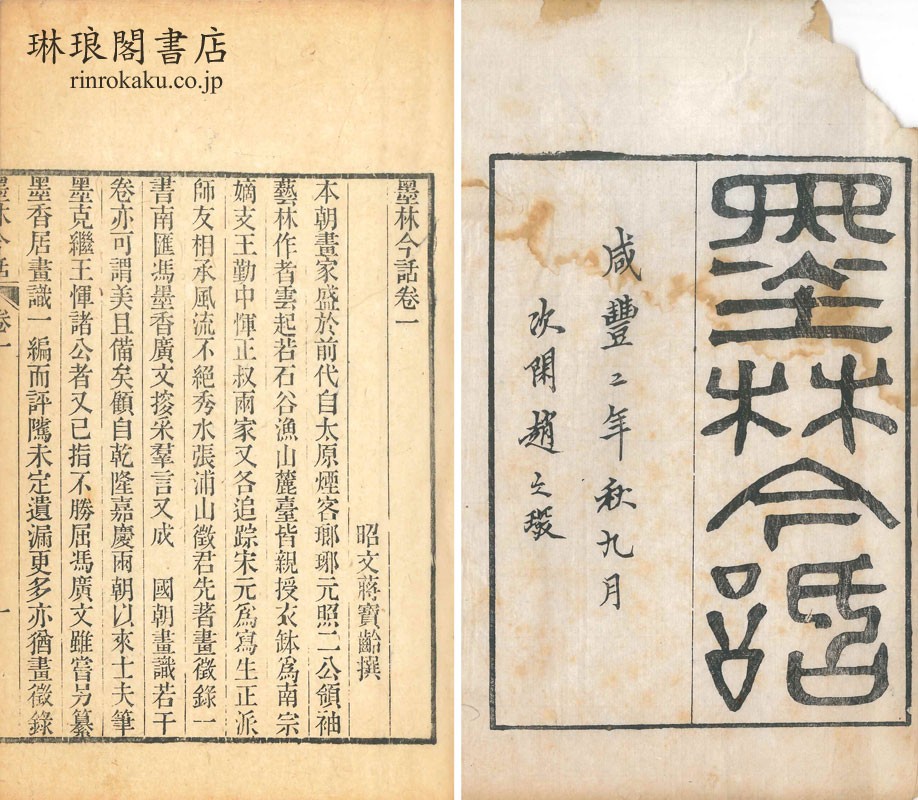 琳琅閣書店
rinrokaku.co.jp
墨林今話
咸豐二年秋九月
次閑趙之琛
墨林今話卷一
昭文蔣寶齡撰
本朝畫家盛於前代自太原煙客瑯琊元照二公領袖
藝林作者雲起若石谷漁山麓臺皆親授衣鉢爲南宗
嫡支王勤中惲正叔兩家又各追踪宋元爲寫生正派
師友相承風流不絕秀水張浦山徵君先著畫徵錄一
書南匯馮墨香廣文搜采羣言又成 國朝畫識若干
卷亦可謂美且備矣顧自乾隆嘉慶兩朝以來士夫筆
墨克繼王惲諸公者又已指不勝屈馮廣文雖嘗另纂
墨香居畫識一編而評騭未定遺漏更多亦猶畫徵錄
墨林今話 卷一 一